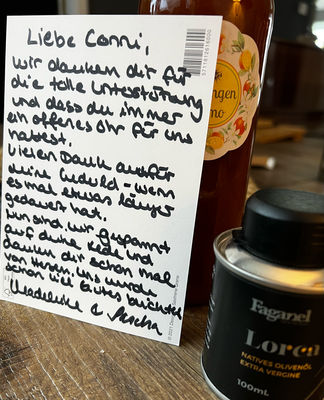 Liebe Conni,
wir danken dir für
die tolle Unterstützung
und dass du immer
ein offenes Ohr für uns
hattest.
Vielen Dank auch für
deine Geduld - wenn
es mal etwas länger
gedauert hat.
Nun sind wir gespannt
auf deine Rede und
danken dir schon mal
von Herzen, uns wurde
schon viel Gutes berichtet
&
ngen
no
Faganel
Lorca
NATIVES OLIVENÖL
EXTRA VERGINE
100mL